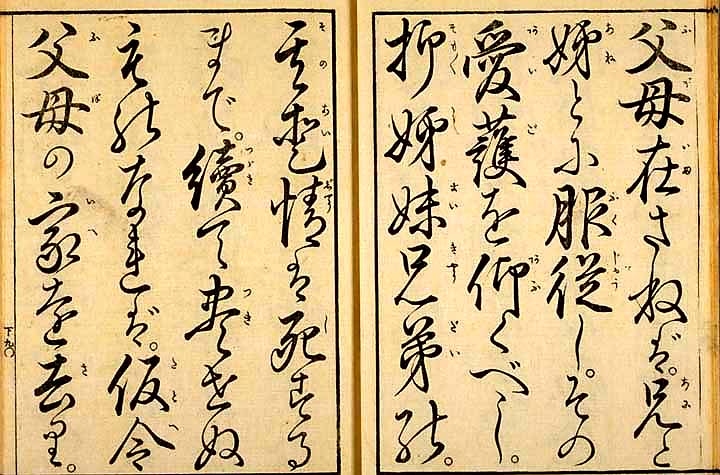 父母在さねば。兄と
姊とに服従し。その
愛護を仰くべし。
抑姊妹兄弟の。
其愛情は死する
まで。續て尽せぬ
ものなれば。仮令
父母の家を去り。
下九〇